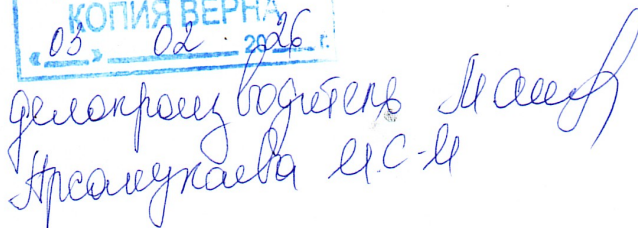 КОПИЯ ВЕРНА
« 03 » 02. 2026 г.
делопроизводитель
Арсамукаева М.С-М